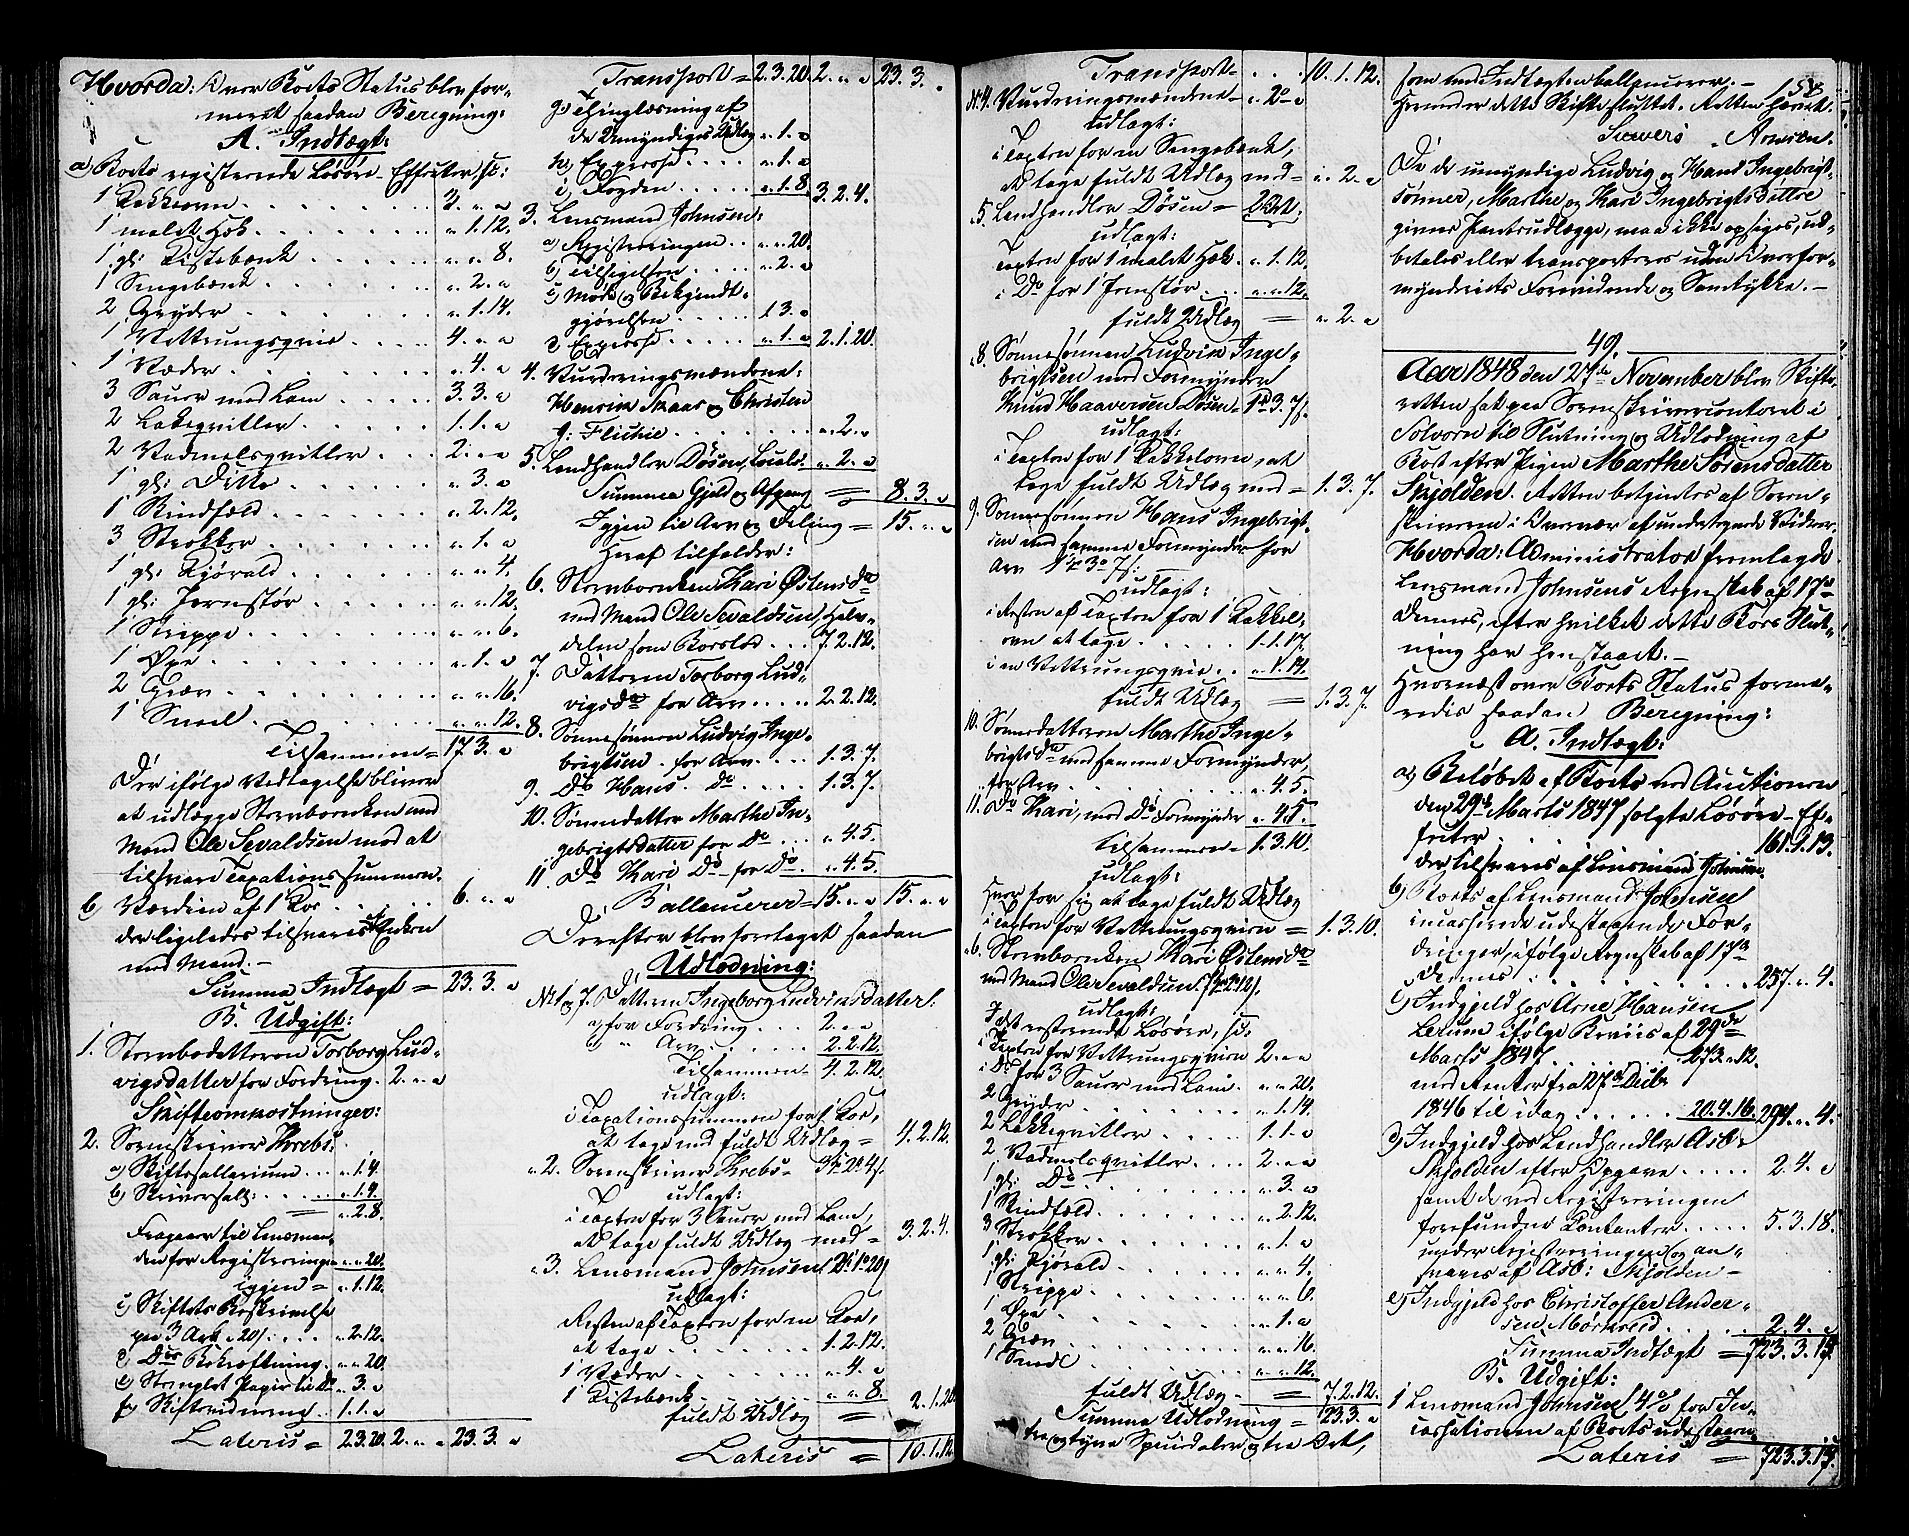 Hvorda: Over Boets Status blev for-
meret saadan Beregning:
A. Indtægt:
a) Boets registrerede Løsøre-Effecter, sc:
1 Kakkelovn 3. " "
1 malet Hok " 1. 12.
1 gl: Kistebænk " " 8.
1 Sengebænk " 2. "
2 Gryder " 1. 14.
1 Vettrungsqvie 4. " "
1 Væder " 4. "
3 Sauer med Lam 3. 3. "
2 Lakeqvitler 1. 1. "
2 Vadmelsqvitler 2. " "
1 gl: Ditto " 3. "
1 Rindfæld " 2. 12.
3 Strokker " 1. "
1 gl: Kjørald " " 4.
1 gl: Jernstør " " 12.
1 Skrippe " " 6.
1 Øxe " 1. "
2 Græv " " 16.
1 Sneel " " 12.
Tilsammen = 17. 3. "
Der ifølge Vedtagelse bliver
at udlægge Sterboenken med
Mand Ole Sevaldsen mod at
tilsvare Taxationssummen.
b) Værdien af 1 Kor 6. " "
der ligeledes tilsvares Enken
med Mand.-
Summa Indtægt = 23. 3. "
B. Udgift:
1. Sterbodatteren Torborg Lud-
vigsdatter for Fordring. 2. " "
Skifteomkostninger:
2. Sorenskriver Krebs:
a) Skiftesallarium " 1. 4.
b) Skriversalt: " 1. 4.
" 2. 8.
Fragaar til Lensman-
den for Registreringen " " 20.
igjen = " 1. 12.
c) Skiftets Beskrivelse
paa 3 Ark a 20 s: " 2. 12.
d) Dets Bekræftning " " 20.
e) Stemplet Papir til Do " 3. "
f) Skiftevidnerne 1. 1. "
Lateris = 2. 3. 20. 2. " " 23. 3. "
Transport = 2. 3. 20. 2. " " 23. 3. "
g) Thinglæsning af
de Umyndiges Udlæg " 1. "
h) Expresse " 1. "
i) Fogden " 1. 8. 3. 2. 4.
3. Lensmand Johnsen:
a) Registreringen " " 20.
b) Tilsigelsen " 2. "
c) Møde og Bekjendt-
gjørelsen 1. 3. "
d) Expresse " 1. " 2. 1. 20.
4. Vurderingsmændene:
Henrik Skaar og Christen
" 2. "
5. Landhandler Døsen " 2. "
Summa Gjeld og Afgang = 8. 3. "
Igjen til Arv og Deling = 15. " "
Heraf tilfalder:
6. Sterboenken Kari Østensdr
med Mand Ole Sevaldsen, Halv-
delen som Boeslod 7. 2. 12.
7. Datteren Torborg Lud-
vigsdr for Arv 2. 2. 12.
8. Sønnesønnen Ludvig Inge-
brigtsen for Arv 1. 3. 7.
9. Do Hans Do 1. 3. 7.
10. Sønnedatter Marthe In-
gebrigtsdatter for Do " 4. 5.
11. Do Kari Do for Do " 4. 5.
Ballancerer = 15. " " 15. " "
Derefter blev foretaget saadan
Udlodning:
No 1 og 7. Datteren Ingeborg Ludvigsdatter:
a) for Fordring 2. " "
b) " Arv 2. 2. 12.
Tilsammen = 4. 2. 12.
udlagt:
i Taxationssummen for 1 Kor,
at tage med fuldt Udlæg = 4. 2. 12.
" 2. Sorenskriver Krebs = 3. 2. 4.
udlagt:
i Taxten for 3 Sauer med Lam,
at tage fuldt Udlæg med = 3. 2. 4.
" 3. Lensmand Johnsen 2. 1. 20.
udlagt:
Resten af Taxten for en Kor,
at tage 1. 2. 12.
1 Væder " 4. "
1 Kistebænk " " 8.
fuldt Udlæg = 2. 1. 20.
Lateris = 10. 1. 12.
Transport = 10. 1. 12.
No 4. Vurderingsmændene = " 2 "
udlagt:
i Taxten for en Sengebænk,
at tage fuldt Udlæg med = " 2. "
" 5. Landhandler Døsen = 2 Ort.
udlagt:
Taxten for 1 malet Hok " 1. 12.
i Do for 1 Jernstør " " 12.
fuldt Udlæg = " 2. "
" 8. Sønnesønnen Ludvik Inge-
brigtsen med Formynder
Knud Haaversen Døsen 1. 3. 7.
udlagt:
i Taxten for 1 Kakkelovn, at
tage fuldt Udlæg med = 1. 3. 7.
9. Sønnesønnen Hans Ingebrigt-
sen med samme Formynder for
Arv 1. 3. 7.
udlagt:
i Resten af Taxten for 1 Kakkel-
ovn at tage 1. 1. 17.
i en Vettrungsqvie " 1. 14.
fuldt Udlæg = 1. 3. 7.
10. Sønnedatteren Marthe Inge-
brigtsdr med samme Formynder,
for Arv " 4. 5.
11. Do Kari, med Do Formynder " 4. 5.
tilsammen = 1. 3. 10.
udlagt:
Hver for sig at tage fuldt Udlæg
i Taxten for Vettrungsqvien = 1. 3. 10.
" 6. Sterboenken Kari Østensdr
med Mand Ole Sevaldsen 7. 2. 12.
udlagt:
I det resterende Løsøre, sc:
i Taxten for Vettrungsqvien 2. " "
i Do for 3 Sauer med Lam " " 20.
2 Gryder " 1. 14.
2 Lakeqvitler 1. 1. "
2 Vadmelsqvitler 2. " "
1 gl: Do " 3. "
1 Rindfæld " 2. 12.
3 Strokker " 1. "
1 gl: Kjørald " " 4.
1 Skrippe " " 6.
1 Øxe " 1. "
2 Græv " " 16.
1 Sneel " " 12.
fuldt Udlæg = 7. 2. 12.
Summa Udlodning = 23. 3. "
tre og tyve Speciedaler og tre Ort,
158
som med Indtægten ballancerer.-
Herunder dette Skifte sluttet. Retten hævet.
De de umyndige Ludvig og Hans Ingebrigt-
sønner, Marthe og Kari Ingebrigtsdøttre
givne Panteudlægge, maa ikke opsiges, ud-
betales eller transporteres uden Overfor-
mynderiets Foranledende og Samtykke.-
49.
Aar 1848 den 27de November blev Skifte-
retten sat paa Sorenskrivercontoret i
Solvorn til Slutning og Udlodning af
Boet efter Pigen Marthe Sørensdatter
Skjolden. Retten betjentes af Soren-
skriveren i Overvær af undertegnede Vidner.
Hvorda: Administrator fremlagde
Lensmand Johnsens Regnskab af 17de
dennes, efter hvilket dette Boes Slut-
ning har henstaaet.-
Hvornæst over Boets Status forme-
redes saadan Beregning:
A. Indtægt:
a) Beløbet af Boets ved Auctionen
den 29de Marts 1847 solgte Løsøre-Ef-
fecter 161. 3. 13.
der tilsvares af Lensmand Johnsen
b) Boets af Lensmand Johnsen
incasserede udestaaende For-
dringer, ifølge Regnskab af 17de
dennes 257. " 4.
c) Indgjeld hos Arne Hansen
Lerum ifølge Beviis af 29de
Marts 1847 273. " 12.
med Renter fra 27de Decbr
1846 til idag 20. 4. 16. 294. " 4.
d) Indgjeld hos Landhandler Asb:
Skjolden efter Opgave 2. 4. "
samt de ved Registreringen
forefundne Contanter 5. 3. 18.
under Registreringen og an-
svares af Asb: Skjolden-
e) Indgjeld hos Christoffer Ander-
sen Mørkrid 2. 4. "
Summa Indtægt = 723. 3. 15.
B. Udgift:
1 Lensmand Johnsen 4 % for In-
cassationen af Boets udestaaen-
Lateris = 723. 3. 15.